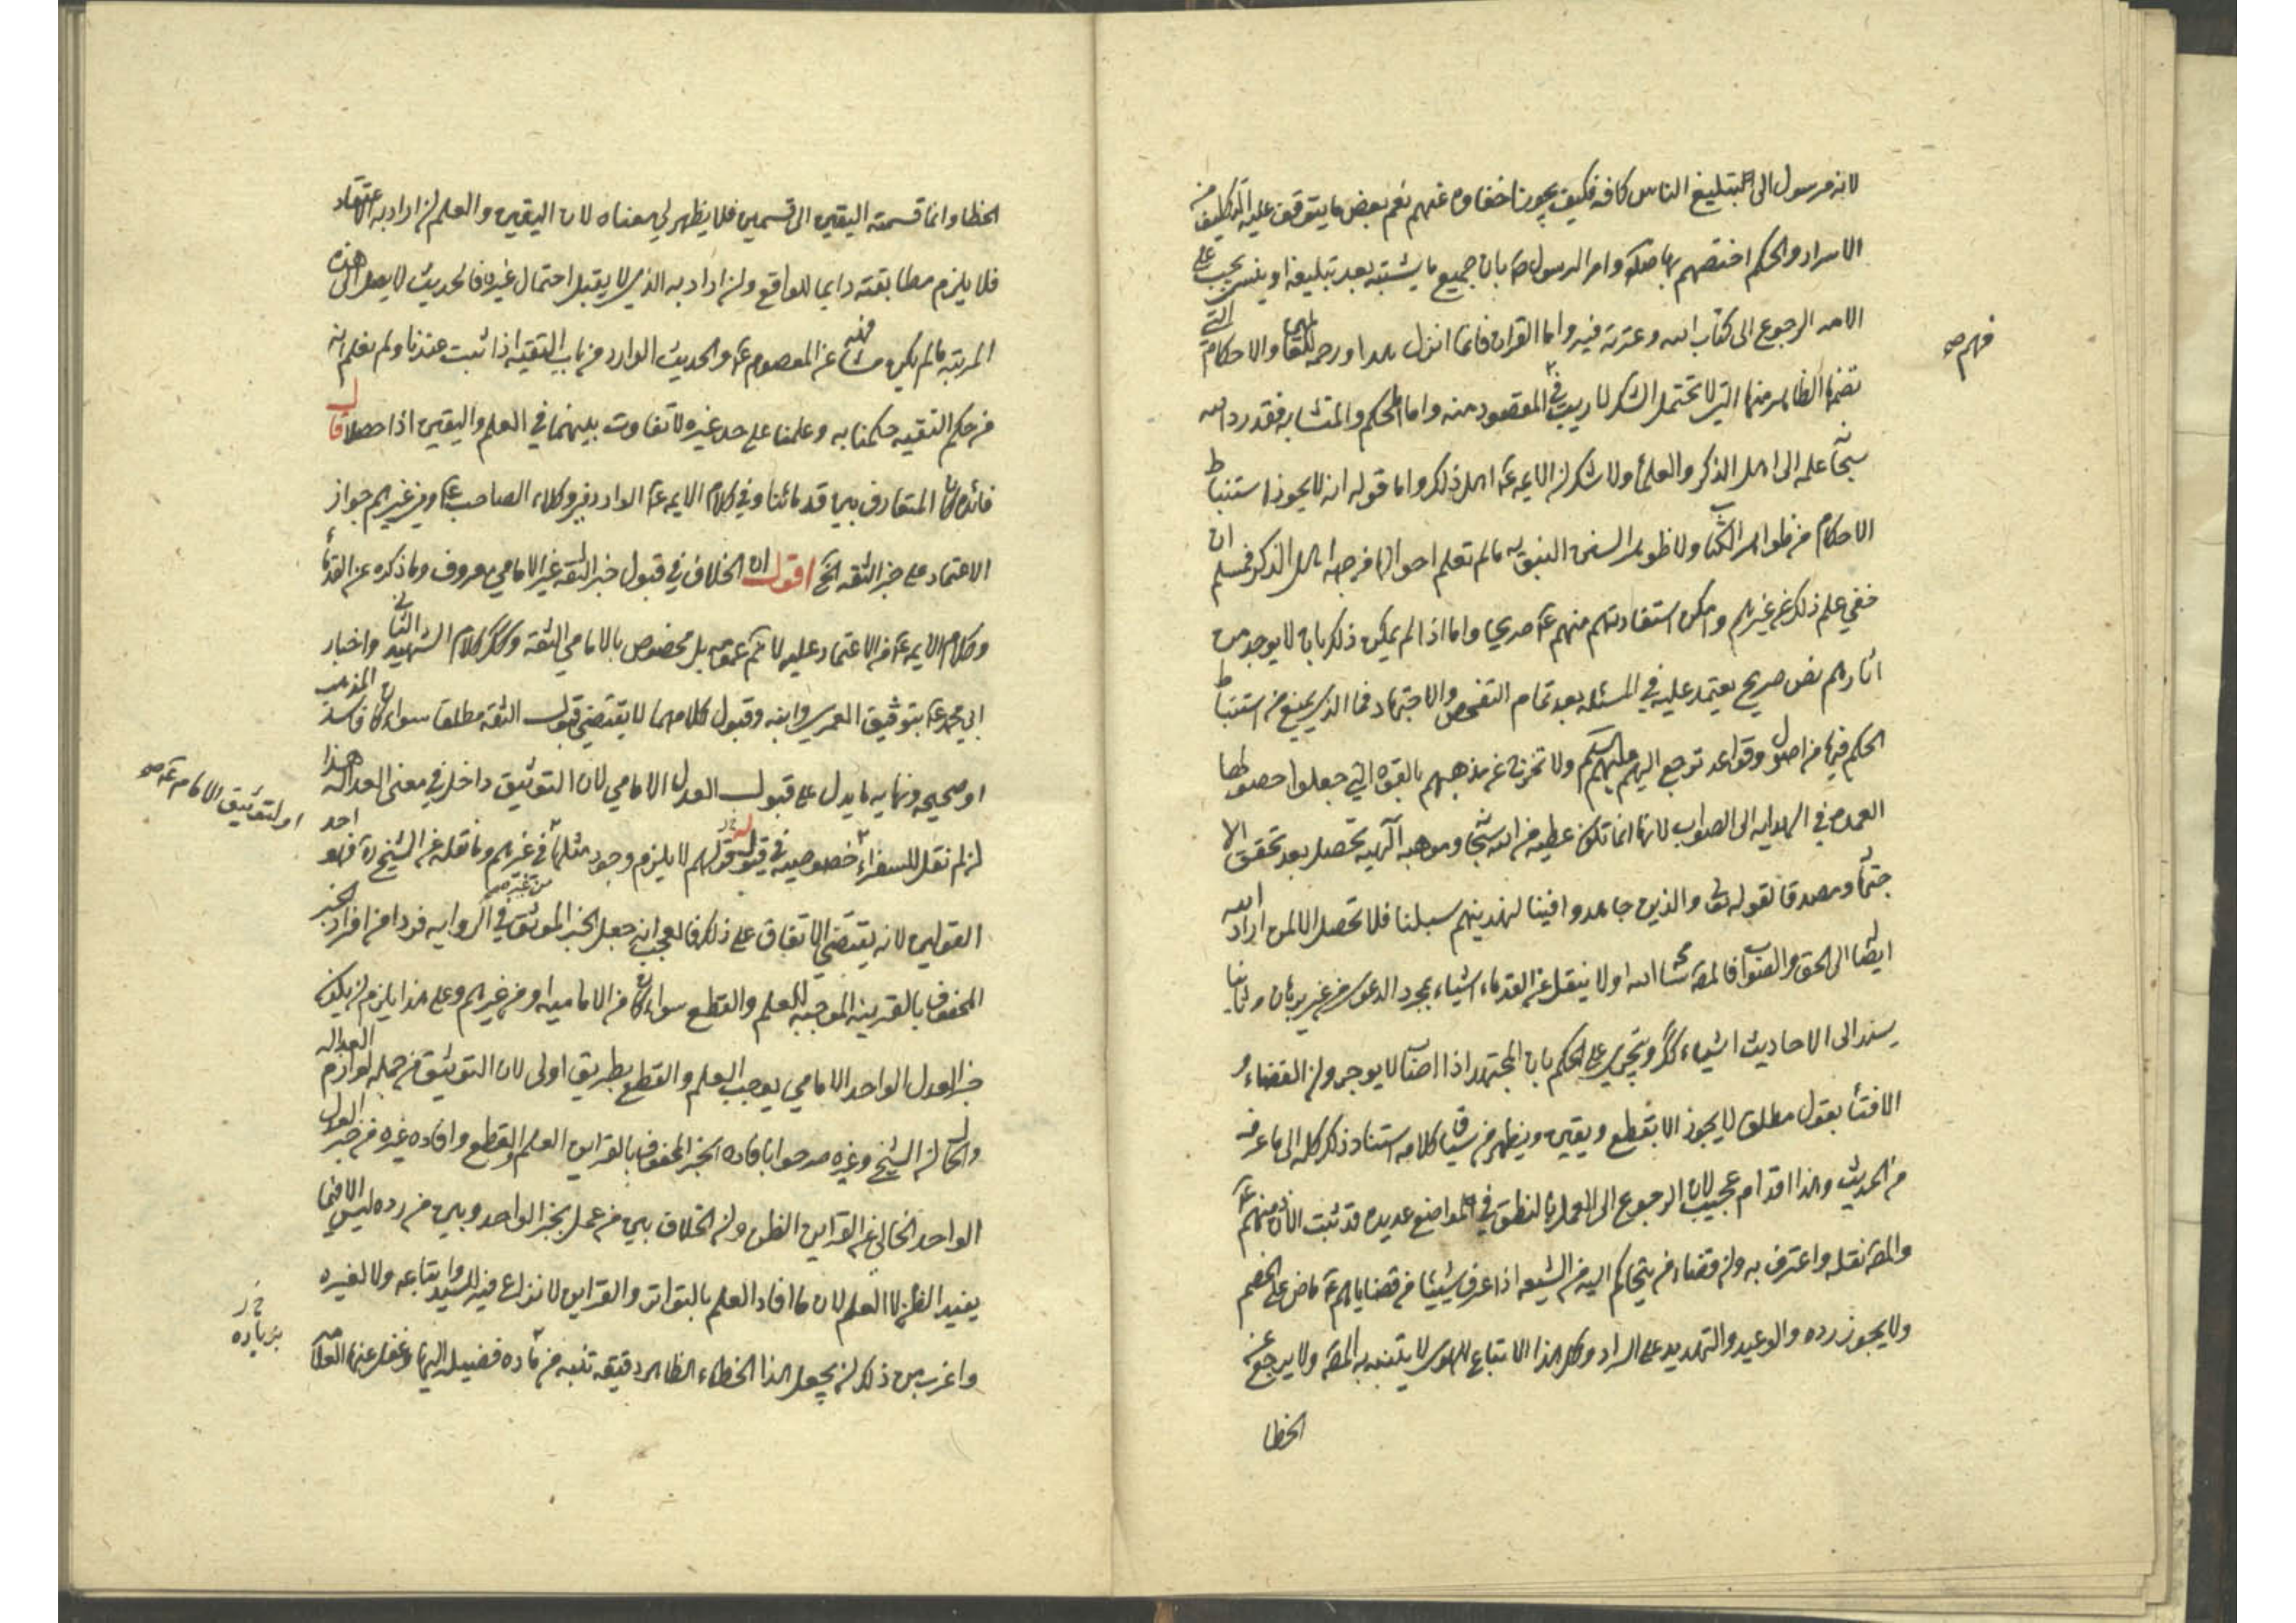 لانه مرسول الى لتبليغ الناس كافه فكيف يجوز اخفاوه عنهم نعم بعض ما يتوقف عليه التكليف من
الاسرار والحكم اختصهم بها صلى وامر الرسول ص بان جميع ما يشتبه بعد تبليغه او ينسى يجب على
الامه الرجوع الى كتاب الله وعترته فيه واما القران فانما انزل هدا ورحمه للعلما والاحكام التى
تضمنها الظاهر منها التى لا تحتمل الشك لا ريب فى المقصود منه واما المحكم والمتشابه فقد رد الله
سبحا علمه الى اهل الذكر والعلم ولا شك ان الايمه ع اهل ذلك واما قوله انه لا يجوز استنباط
الاحكام من ظواهر الكتاب ولا ظواهر السنن النبويه ما لم تعلم احوالها من جهه اهل الذكر فمسلم ان
خفي علم ذلك عن غيرهم وامكن استفادتهم منهم ع صريحا واما اذا لم يمكن ذلك بان لا يوجد من
اثارهم نص صريح يعتمد عليه في المسئله بعد تمام التفحص والاجتهاد فما الذى يمنع من استنباط
الحكم فيها من اصول وقواعد ترجع اليهم عليهم السلم ولا تخرج عن مذهبهم بالقوه التي جعلوا حصولها
العمده في الهدايه الى الصواب لانها انما تكون عطيه من الله سبحا وموهبه الهيه تحصل بعد تحقق الا
جتها ومصدقا لقوله تعالى والذين جاهدوا فينا لنهدينهم سبلنا فلا تحصل الا لمن اراد الله
ايصاله الى الحق والصواب فالمص سامحه الله اولا ينقل عن القدماء اشياء بمجرد الدعوى من غير برهان وثانيا
يسند الى الاحاديث اشياء كك ويتجرى على الحكم بان المجتهد اذا اصاب لا يوجر وان القضاء و
الافتا بقول مطلق لا يجوز الا بقطع ويقين ويظهر من سياق كلامه استناد ذلك كله الى ما عرفه
من الحديث وهذا اقدام عجيب لان الرجوع الى العمل بالظن في مواضع عديده قد ثبت الاذن منهم ع
والمص نقله واعترف به وان قضاء من يتحاكم اليه من الشيعه اذا عرف شيئا من قضاياهم ع ماض على الخصم
ولا يجوز رده والوعيد والتهديد على الراد وكل هذا الاتباع للهوى لا يتنبه به المص ولا يرجع عن
الخطا
فهم صح
الخطا واما قسمته اليقين الى قسمين فلا يظهر لي معناه لان اليقين والعلم ان اراد به الاعتقاد
فلا يلزم مطابقته دايما للواقع وان اراد به الذى لا يقبل احتمال غيره فالحديث لا يصل الى هذه
المرتبه ما لم يكن مشافهه عن المعصوم ع والحديث الوارد من باب التقيه اذا ثبت عندنا ولم نعلم انه
من حكم التقيه حكمنا به وعلمنا على حد غيره ولا تفاوت بينهما في العلم واليقين اذا حصلا قال
فائده كان المتعارف بين قدمائنا وفي كلام الايمه ع الوارد في وكلاء الصاحب ع وفي غيرهم جواز
الاعتماد على خبر الثقه الخ اقول ان الخلاف في قبول خبر الثقه غير الامامي معروف وما ذكره عن القدما
وكلام الايمه ع من الاعتماد عليه لا يتم عمومه بل مخصوص بالامامي الثقه وكك كلام الشهيد الثاني واخبار
ابي محمد ع بتوثيق العمرى وابنه وقبول كلامهما لا يقتضي قبول الثقه مطلقا سواء كان فاسد المذهب
او صحيحه ونهايه ما يدل على قبول العدل الامامي لان التوثيق داخل في معنى العداله هذا
ان لم نقل للسفراء خصوصيه في قبول قولهم لا يلزم وجود مثلها في غيرهم وما نقله عن الشيخ ره فهو احد
القولين لانه يقتضي الاتفاق على ذلك فالعجب انه جعل الخبر الموثق في الروايه فردا من افراد الخبر
المحفوف بالقرينه الموجبه للعلم والقطع سواء كان من الاماميه او من غيرهم وعلى هذا يلزم ان يكون
خبر العدل الواحد الامامي يوجب العلم والقطع بطريق اولى لان التوثيق من جمله لوازم العداله
والحال ان الشيخ وغيره صرحوا بافاده الخبر المحفوف بالقراين العلم والقطع وافاده غيره من خبر العدل
الواحد الخالي عن القراين الظن وان الخلاف بين من عمل بخبر الواحد وبين من رده ليس الا فيما
يفيد الظن لا العلم لان ما افاد العلم بالتواتر والقراين لا نزاع فيه للسيد واتباعه ولا لغيره
واغرب من ذلك ان يجعل هذا الخطاء الظاهر دقيقه تنبه من ماده فضيله اليها وغفل عنها العلامه
او لتوثيق الامام ع صح
بزياده